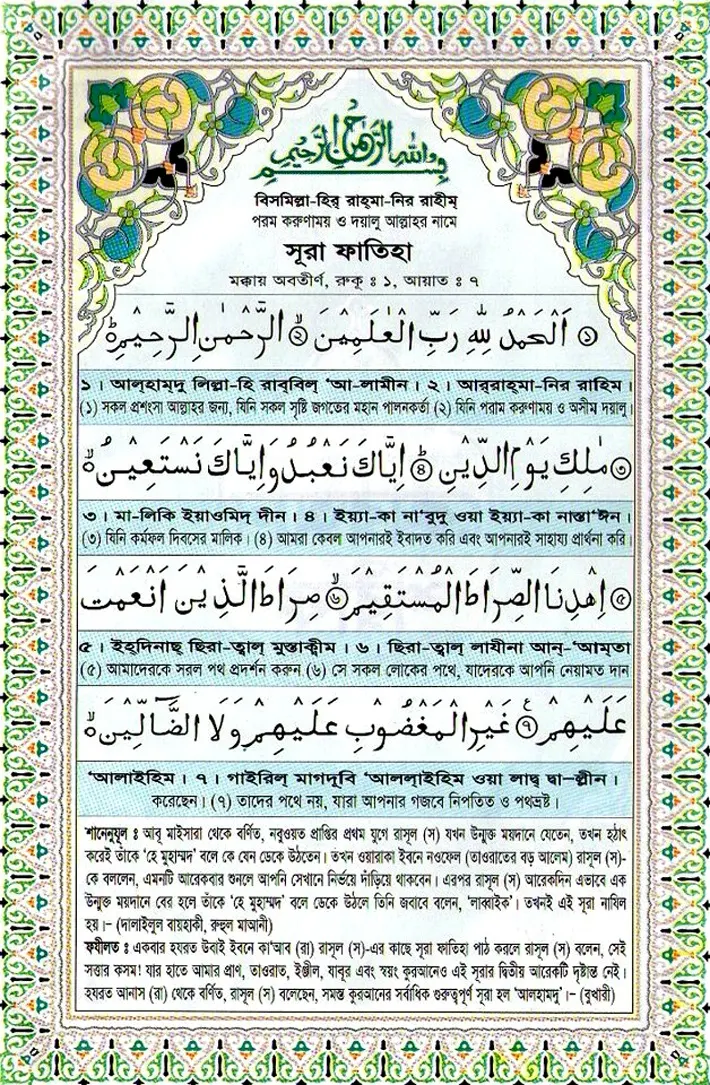 بسم الله الرحمن الرحيم
বিসমিল্লা-হির্ রাহ্মা-নির রাহীম্
পরম করুণাময় ও দয়ালু আল্লাহর নামে
সূরা ফাতিহা
মক্কায় অবতীর্ণ, রুকু : ১, আয়াত : ৭
① اَلْحَمْدُ لِلّٰهِ رَبِّ الْعٰلَمِيْنَ ۙ② الرَّحْمٰنِ الرَّحِيْمِ ۙ
১। আল্হাম্দু লিল্লা-হি রাব্বিল্ ‘আ-লামীন। ২। আর্রাহ্মা-নির রাহিম।
(১) সকল প্রশংসা আল্লাহর জন্য, যিনি সকল সৃষ্টি জগতের মহান পালনকর্তা (২) যিনি পরাম করুণাময় ও অসীম দয়ালু।
③ مٰلِكِ يَوْمِ الدِّيْنِ ؕ④ اِيَّاكَ نَعْبُدُ وَاِيَّاكَ نَسْتَعِيْنُ ؕ
৩। মা-লিকি ইয়াওমিদ্ দীন। ৪। ইয়্যা-কা না‘বুদু ওয়া ইয়্যা-কা নাস্তা‘ঈন।
(৩) যিনি কর্মফল দিবসের মালিক। (৪) আমরা কেবল আপনারই ইবাদত করি এবং আপনারই সাহায্য প্রার্থনা করি।
⑤ اِهْدِنَا الصِّرَاطَ الْمُسْتَقِيْمَ ۙ⑥ صِرَاطَ الَّذِيْنَ اَنْعَمْتَ
৫। ইহ্দিনাছ্ ছিরা-ত্বাল্ মুস্তাক্বীম। ৬। ছিরা-ত্বাল্ লাযীনা আন্-‘আম্তা
(৫) আমাদেরকে সরল পথ প্রদর্শন করুন (৬) সে সকল লোকের পথে, যাদেরকে আপনি নেয়ামত দান
عَلَيْهِمْ ⑦ غَيْرِ الْمَغْضُوْبِ عَلَيْهِمْ وَلَا الضَّآلِّيْنَ
‘আলাইহিম। ৭। গাইরিল্ মাগদূবি ‘আললাইহিম ওয়া লাদ্ব দ্বা–ল্লীন।
করেছেন। (৭) তাদের পথে নয়, যারা আপনার গজবে নিপতিত ও পথভ্রষ্ট।
শানেনুযূল : আবূ মাইসারা থেকে বর্ণিত, নবুওয়ত প্রাপ্তির প্রথম যুগে রাসূল (স) যখন উন্মুক্ত ময়দানে যেতেন, তখন হঠাৎ
করেই তাঁকে ‘হে মুহাম্মদ’ বলে কে যেন ডেকে উঠতেন। তখন ওয়ারাকা ইবনে নওফেল (তাওরাতের বড় আলেম) রাসূল (স)-
কে বললেন, এমনটি আরেকবার শুনলে আপনি সেখানে নির্ভয়ে দাঁড়িয়ে থাকবেন। এরপর রাসূল (স) আরেকদিন এভাবে এক
উন্মুক্ত ময়দানে বের হলে তাঁকে ‘হে মুহাম্মদ’ বলে ডেকে উঠলে তিনি জবাবে বলেন, ‘লাব্বাইক’। তখনই এই সূরা নাযিল
হয়।– (দালাইলুল বায়হাকী, রুহুল মাআনী)
ফযীলত : একবার হযরত উবাই ইবনে কা‘আব (রা) রাসূল (স)-এর কাছে সূরা ফাতিহা পাঠ করলে রাসূল (স) বলেন, সেই
সত্তার কসম! যার হাতে আমার প্রাণ, তাওরাত, ইঞ্জীল, যাবূর এবং স্বয়ং কুরআনেও এই সূরার দ্বিতীয় আরেকটি দৃষ্টান্ত নেই।
হযরত আনাস (রা) থেকে বর্ণিত, রাসূল (স) বলেছেন, সমস্ত কুরআনের সর্বাধিক গুরুত্বপূর্ণ সূরা হল ‘আলহামদু’।– (বুখারী)